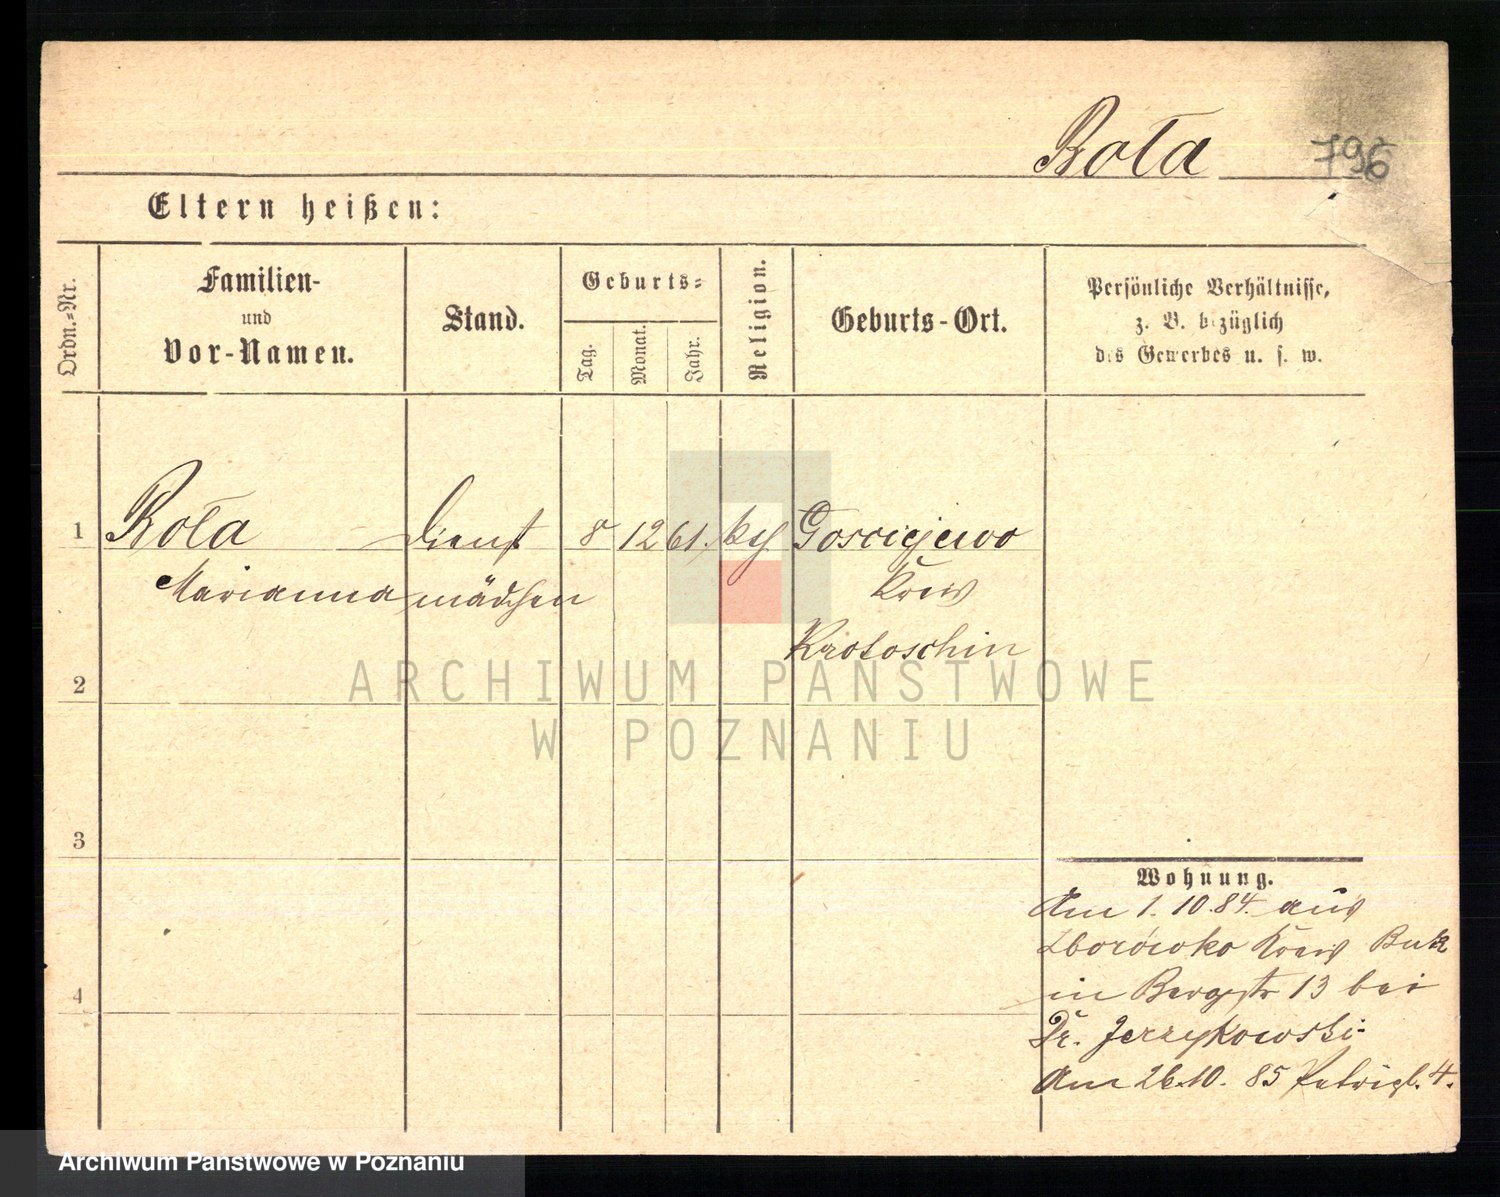 Roła 796
Eltern heißen:
Ordn.-Nr.
Familien-
und
Vor-Namen.
Stand.
Geburts-
Tag.
Monat.
Jahr.
Religion.
Geburts-Ort.
Persönliche Verhältnisse,
z. B. bezüglich
des Gewerbes u. s. w.
1 Roła Dienst 8 12 61. Gosciejewo
Marianna mädchen Kreis
Krotoschin
2
3
4
Wohnung.
Am 1. 10. 84. aus
Zborówko Kreis Buk
in Bergstr 13 bei
Dr. Jerzykowski
Am 26.10. 85 4.
ARCHIWUM PAŃSTWOWE
W POZNANIU
Archiwum Państwowe w Poznaniu